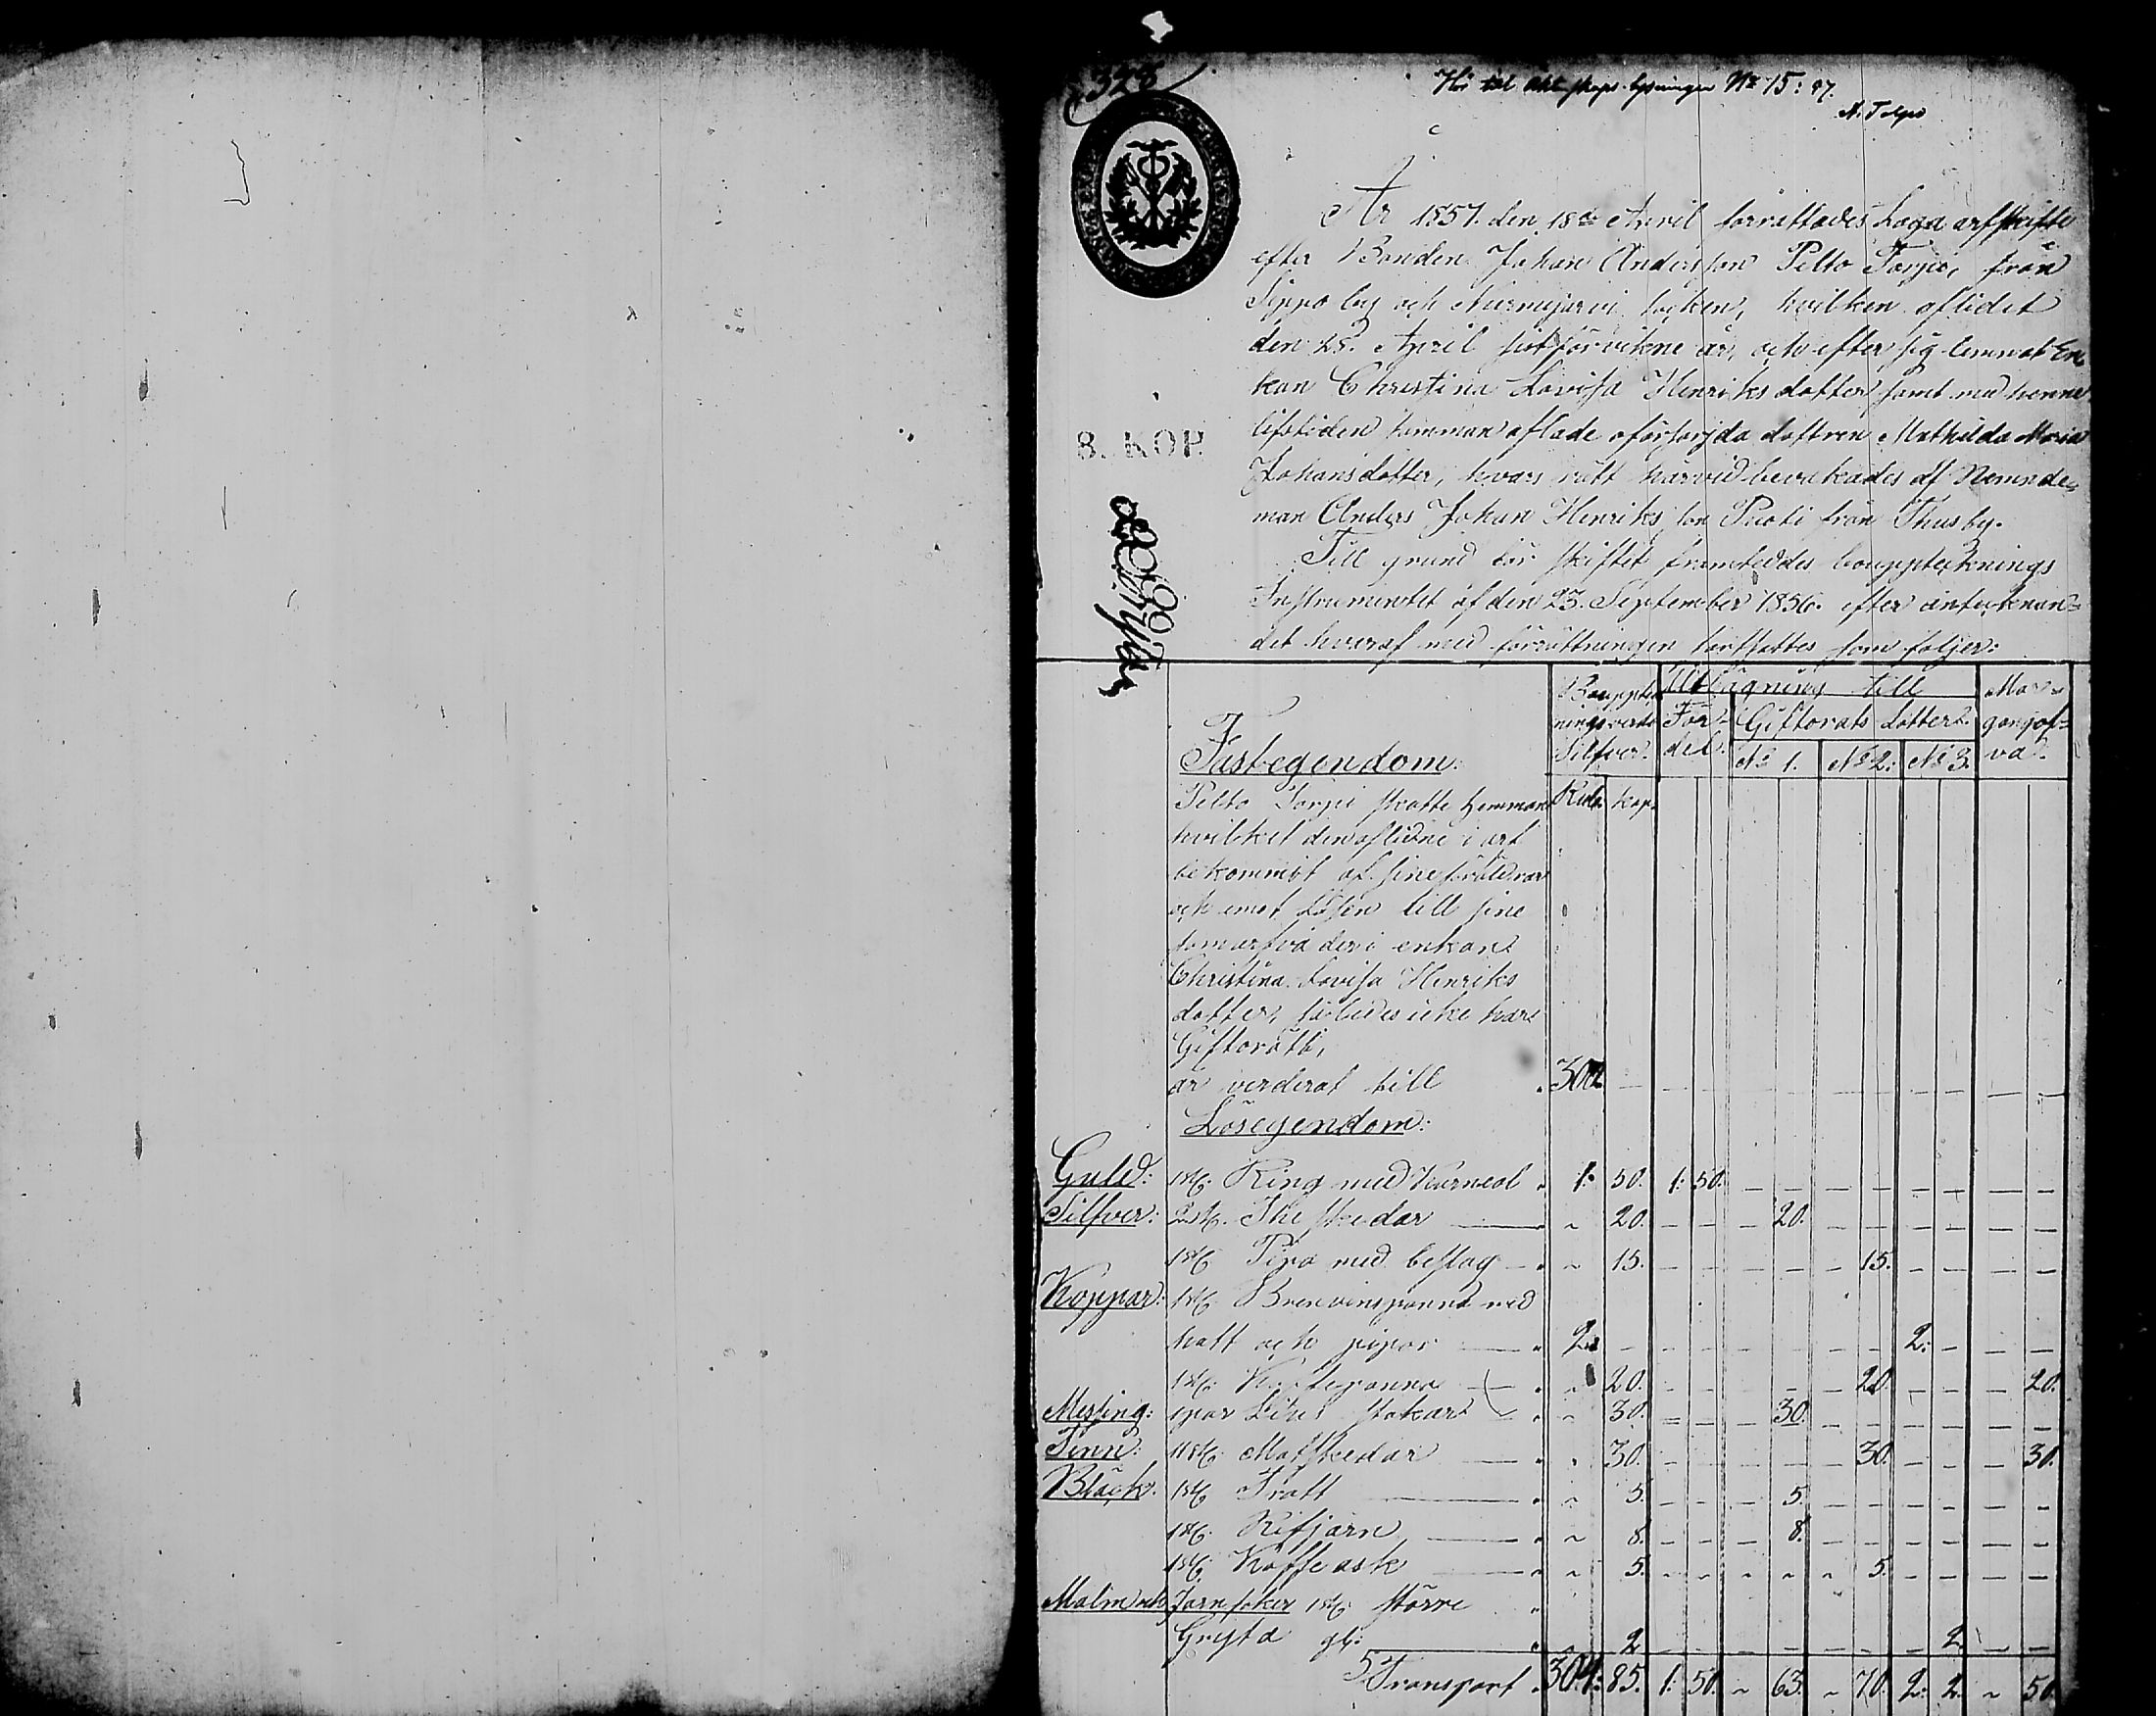 328
Hör till äktenskaps lysningen No 15: 87.
A. Tolpo
8. KOP.
År 1857. den 18de April förrättades Laga arfskifte
efter Bonden Johan Andersson Pelto Torpi, från
Seppo by och Nurmijärvi socken, hvilken aflidit
den 25. April sistförvikne år, och efter sig lemnat En-
kan Christina Lovisa Henriksdotter samt med henne
lifstiden samman aflade oförsörjda dottren Mathilda Maria
Johansdotter, hvars rätt härvid bevakades af Nemnde-
man Anders Johan Henriksson Puoti från Thusby.
Till grund för skiftet framteddes bouppteknings
Instrumentet af den 23. September 1856. efter
det hvaraf med förrättningen fortsattes som följer:
Bouppteck
Utlägning till
Mor-
ningsvärde
För-
Giftorats Lotter
gongof-
Silfver.
del.
No 1. No 2. No 3.
va.
Fastegendom:
Pelto Torpi skatte hemman Rub. kop.
hvilket den aflidne i arf
bekommit af sine föräldrar
och emot lösen till sine
samarfva deri enkan
Christina Lovisa Henriks
dotter, således icke har
Giftorätt,
är verderat till 300.
Lösegendom:
Guld: 1 st. Ring med Karneol 1: 50. 1: 50.
Silfver: 2 st. The skedar 20. 20.
1 st. Pipa med beslag 15. 15.
Koppar: 1 st. Brenvinspanna med
hatt och pipor 2. 2:
1 st. Kaffepanna 20. 20. 20.
Messing: 1 par Ljus stakar 30. 30.
Tenn: 11 st. Matskedar 30. 30. 30.
Bläck: 1 st. Tratt 5. 5.
1 st. Rifjärn 8. 8.
1 st. Kaffe ask 5. 5.
Malm och Jarn saker 1 st. större
Gryta gl: 2 2.
Transport 304: 85. 1: 50. 63. 70. 2: 2. 50.